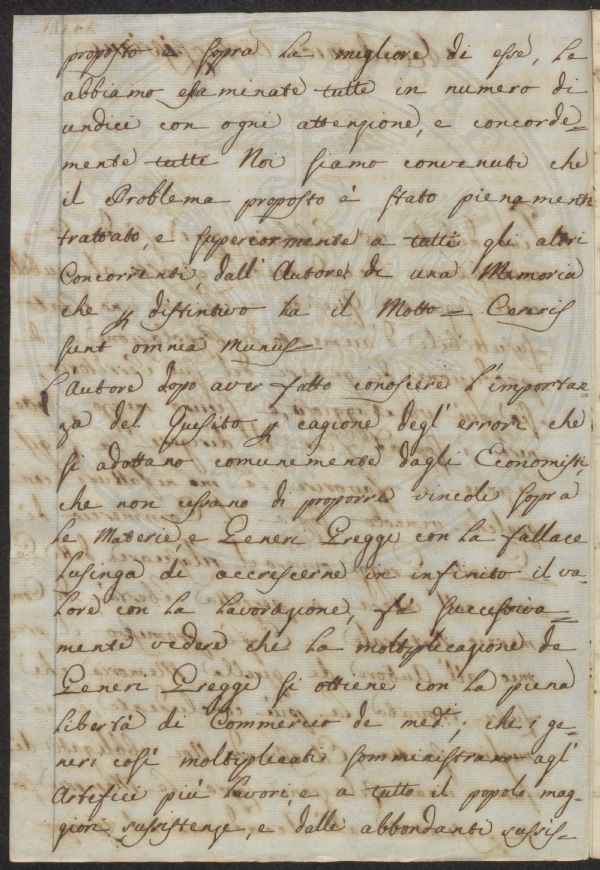 proposto è sopra la migliore di esse, le
abbiamo esaminate tutte in numero di
undici con ogni attenzione, e concorde=
mente tutti Noi siamo convenuti che
il Problema proposto è stato pienamente
trattato, e superiormente a tutti gli altri
Concorrenti, dall' Autore di una Memoria
che p distintivo ha il Motto = Cereris
sunt omnia munus =
L'autore dopo aver fatto conoscere l'importan=
za del Quesito p cagione degl' errori che
si adottano comunemente dagli Economisti,
che non cessano di proporre vincoli sopra
le Materie, e Generi Greggi con la fallace
lusinga di accrescerne in infinito il va=
lore con la lavorazione, fà successiva=
mente vedere che la moltiplicazione de
Generi Greggi si ottiene con la piena
libertà di Commercio de med.i; che i ge=
neri così moltiplicati somministrano agl'
Artefici più lavori, e a tutto il popolo mag=
giori sussistenze, e dalle abbondanti sussis=